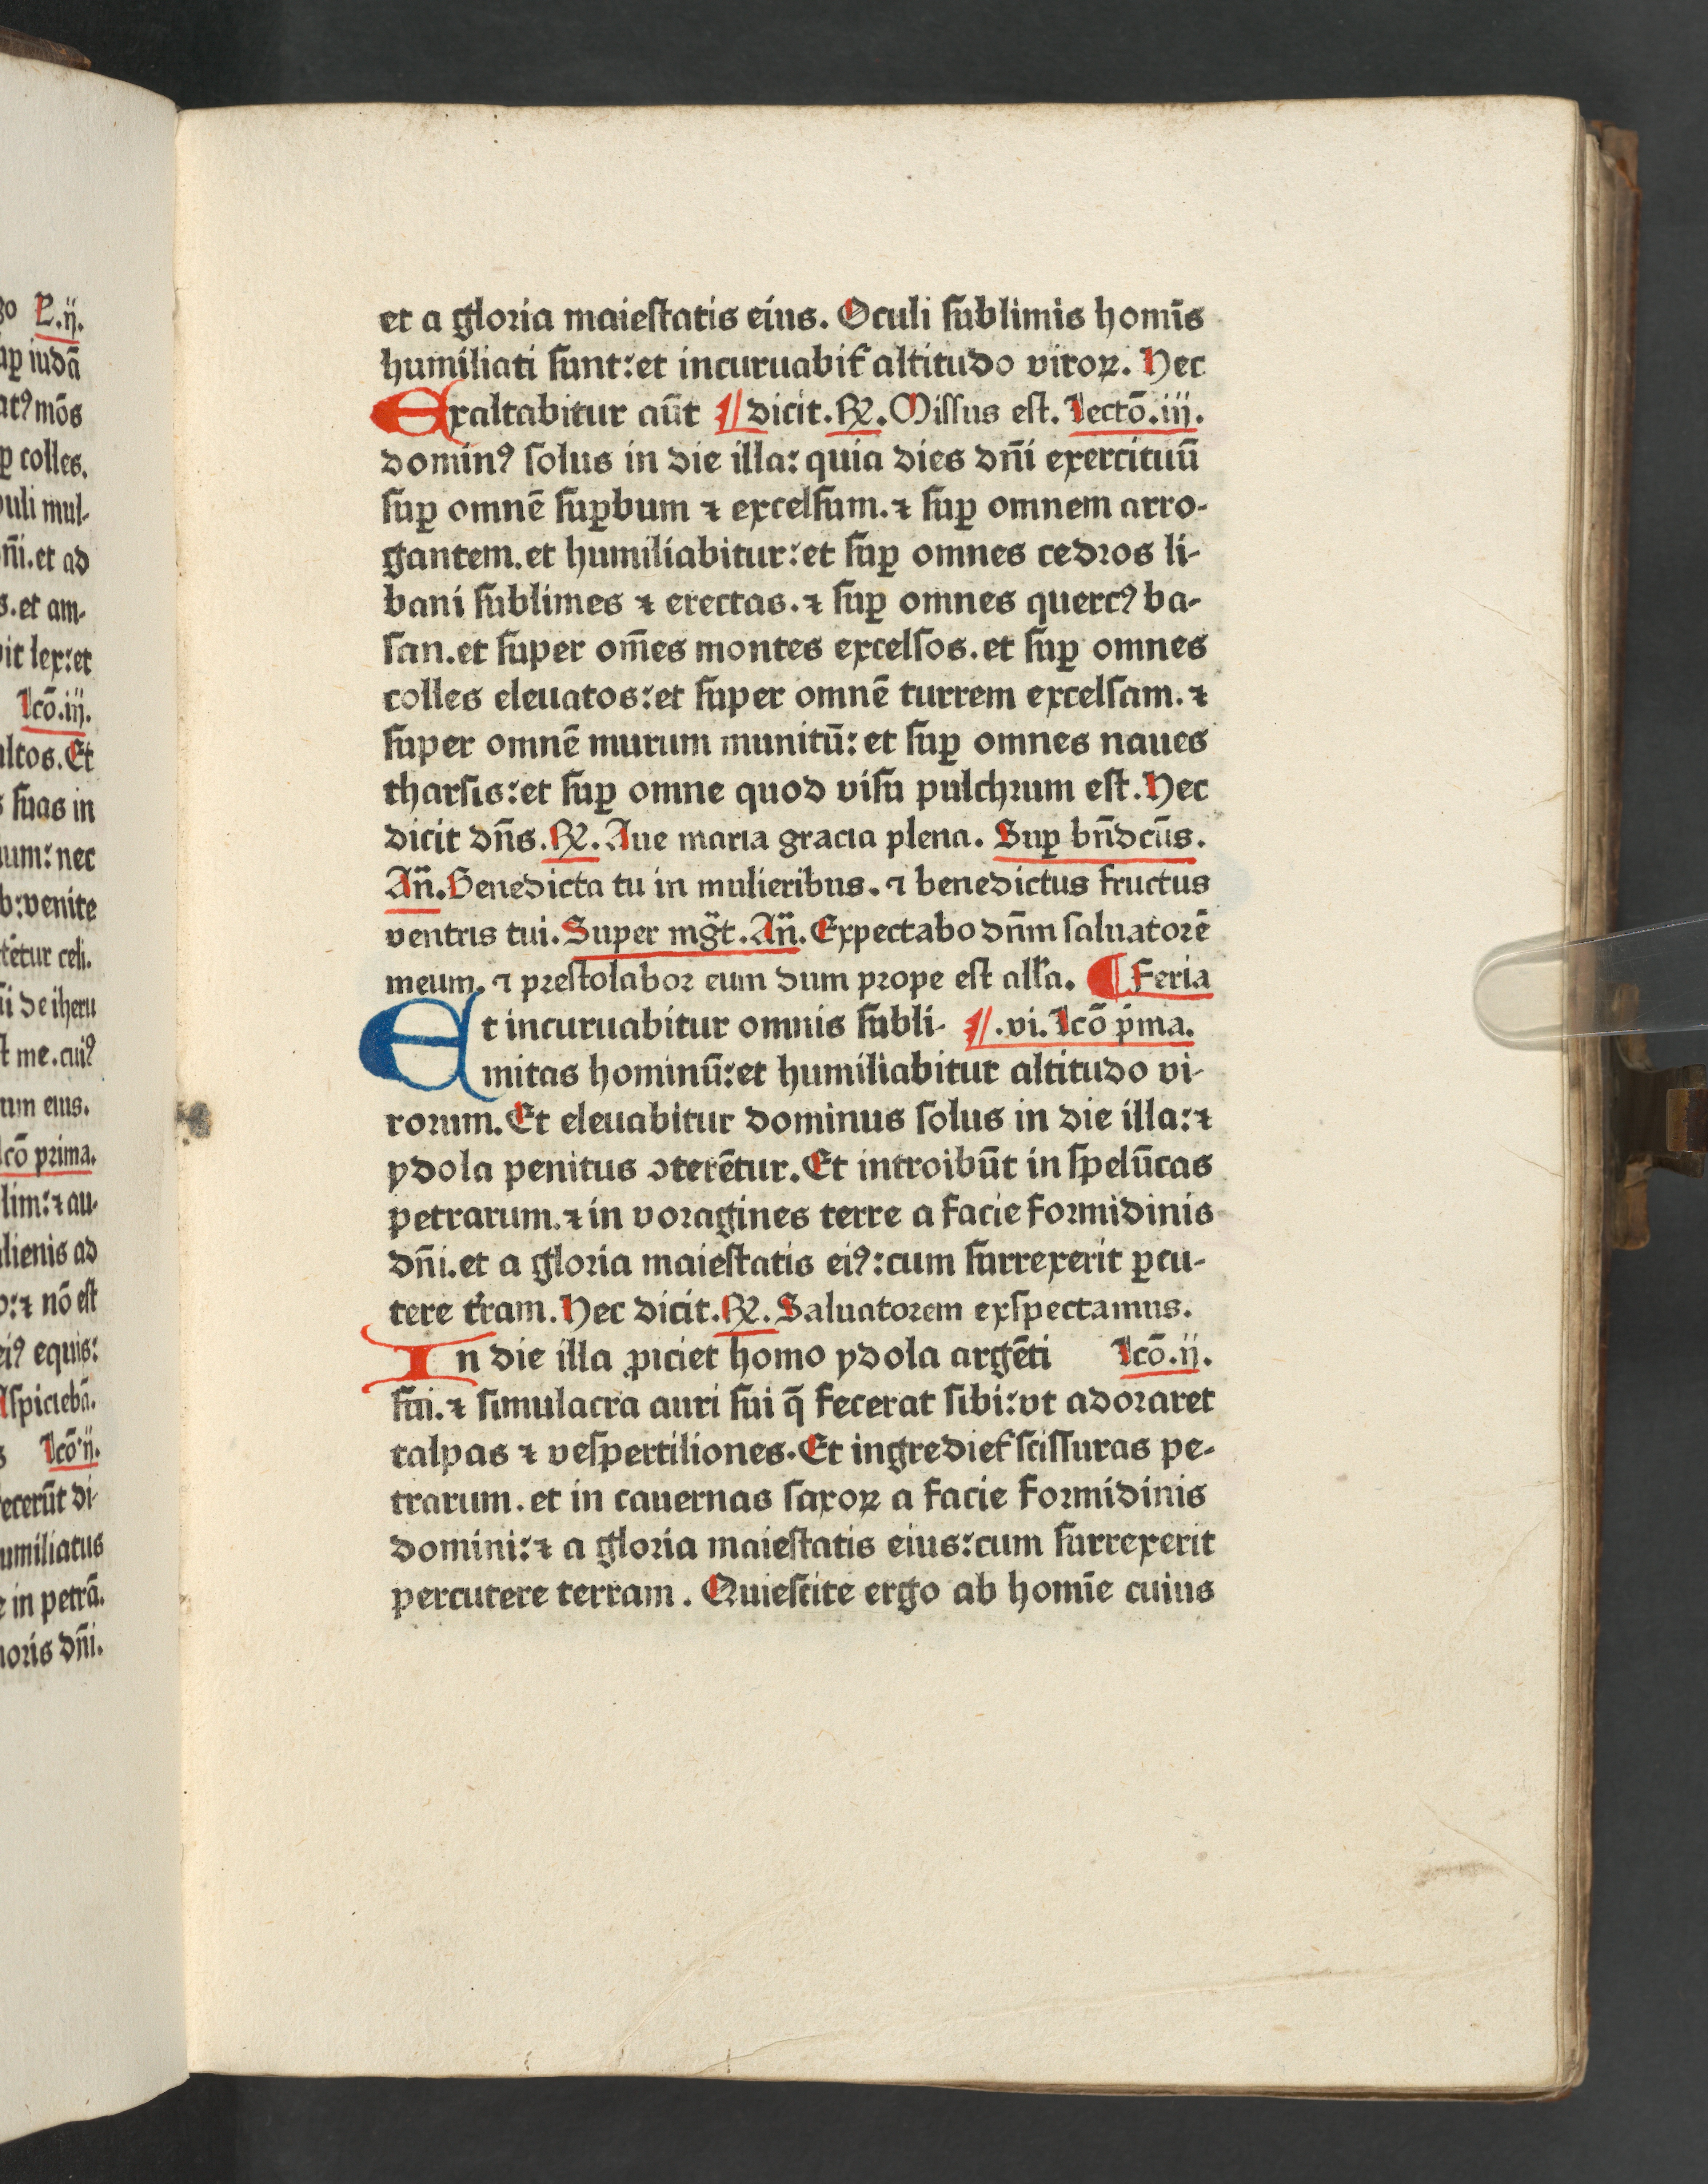 go P.ij.
sup̱ iudā
atꝰ mōs
p̱ colles.
puli mul-
dn̄i.et ad
s.et am-
bit lex:et
lcō.iij.
altos.Et
s suas in
uum:nec
b:venite
tētur celi.
sti de iheru
st me.cuiꝰ
rum eius.
lcō prima.
lim:⁊ au-
alienis ad
o:⁊ nō est
eiꝰ equis:
Aspiciebā.
s lcō.ij.
fecerūt di-
umiliatus
e in petrā.
moris dn̄i.
et a gloria maiestatis eius. Oculi sublimis homīs
humiliati sunt:et incuruabit᷑ altitudo viroꝝ. Hec
Exaltabitur aūt ⁋ dicit.℟.Missus est. Lectō.iij.
dominꝰ solus in die illa: quia dies dn̄i exercituū
suꝑ omnē suꝑbum ⁊ excelsum.⁊ suꝑ omnem arro-
gantem.et humiliabitur:et suꝑ omnes cedros li-
bani sublimes ⁊ erectas.⁊ suꝑ omnes quercꝰ ba-
san.et super om̄es montes excelsos.et suꝑ omnes
colles eleuatos:et super omnē turrem excelsam.⁊
super omnē murum munitū: et suꝑ omnes naues
tharsis:et suꝑ omne quod visu pulchrum est.Hec
dicit dn̄s.℟.Aue maria gracia plena. Suꝑ bn̄dcūs.
An̄.Benedicta tu in mulieribus.⁊ benedictus fructus
ventris tui.Super mḡt.An̄.Expectabo dn̄m saluatorē
meum.⁊ prestolabor eum dum prope est all̄a. ¶ Feria
Et incuruabitur omnis subli- ⁋.vi.Lcō pͥma.
mitas hominū:et humiliabitur altitudo vi-
rorum.Et eleuabitur dominus solus in die illa:⁊
ydola penitus ꝯterētur.Et introibūt in spelūcas
petrarum.⁊ in voragines terre a facie formidinis
dn̄i.et a gloria maiestatis eiꝰ:cum surrexerit ꝑcu-
tere t᷑ram.Hec dicit.℟.Saluatorem exspectamus.
In die illa ꝓiciet homo ydola argēti Lcō.ij.
sui.⁊ simulacra auri sui q̄ fecerat sibi:vt adoraret
talpas ⁊ vespertiliones.Et ingrediet᷑ scissuras pe-
trarum.et in cauernas saxoꝝ a facie formidinis
domini:⁊ a gloria maiestatis eius:cum surrexerit
percutere terram. Quiescite ergo ab homīe cuius